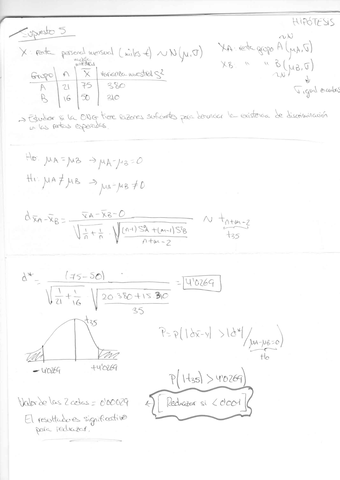 HIPÓTESIS
Supuesto 5
X renta personal mensual (miles €) ~ N(μ, σ)
XA = renta grupo A (μA, σ)
XB = " " B (μB, σ)
Igual
Grupo n X̄ varianza muestral S²
A 21 75 380
B 16 50
→ Estudiar si la ONG tiene razones suficientes para denunciar la existencia de discriminación
en las rentas esperadas.
H0 μA = μB → μA - μB = 0
H1 μA ≠ μB → μA - μB ≠ 0
d x̄A - x̄B = x̄A - x̄B - 0 / √(1/n + 1/m) √((n-1)S²A + (m-1)S²B / n+m-2) ~ t n+m-2
t35
d* = (75 - 50) / √(1/21 + 1/16) √(20·380 + 15· / 35) = 4'0269
t35
P = P(|d
H0
-4'0269 +4'0269
P(|t35| > 4'0269)
Valor de las 2 colas = 0'00029
Rechazar si <
El resultado es significativo
para rechazar.